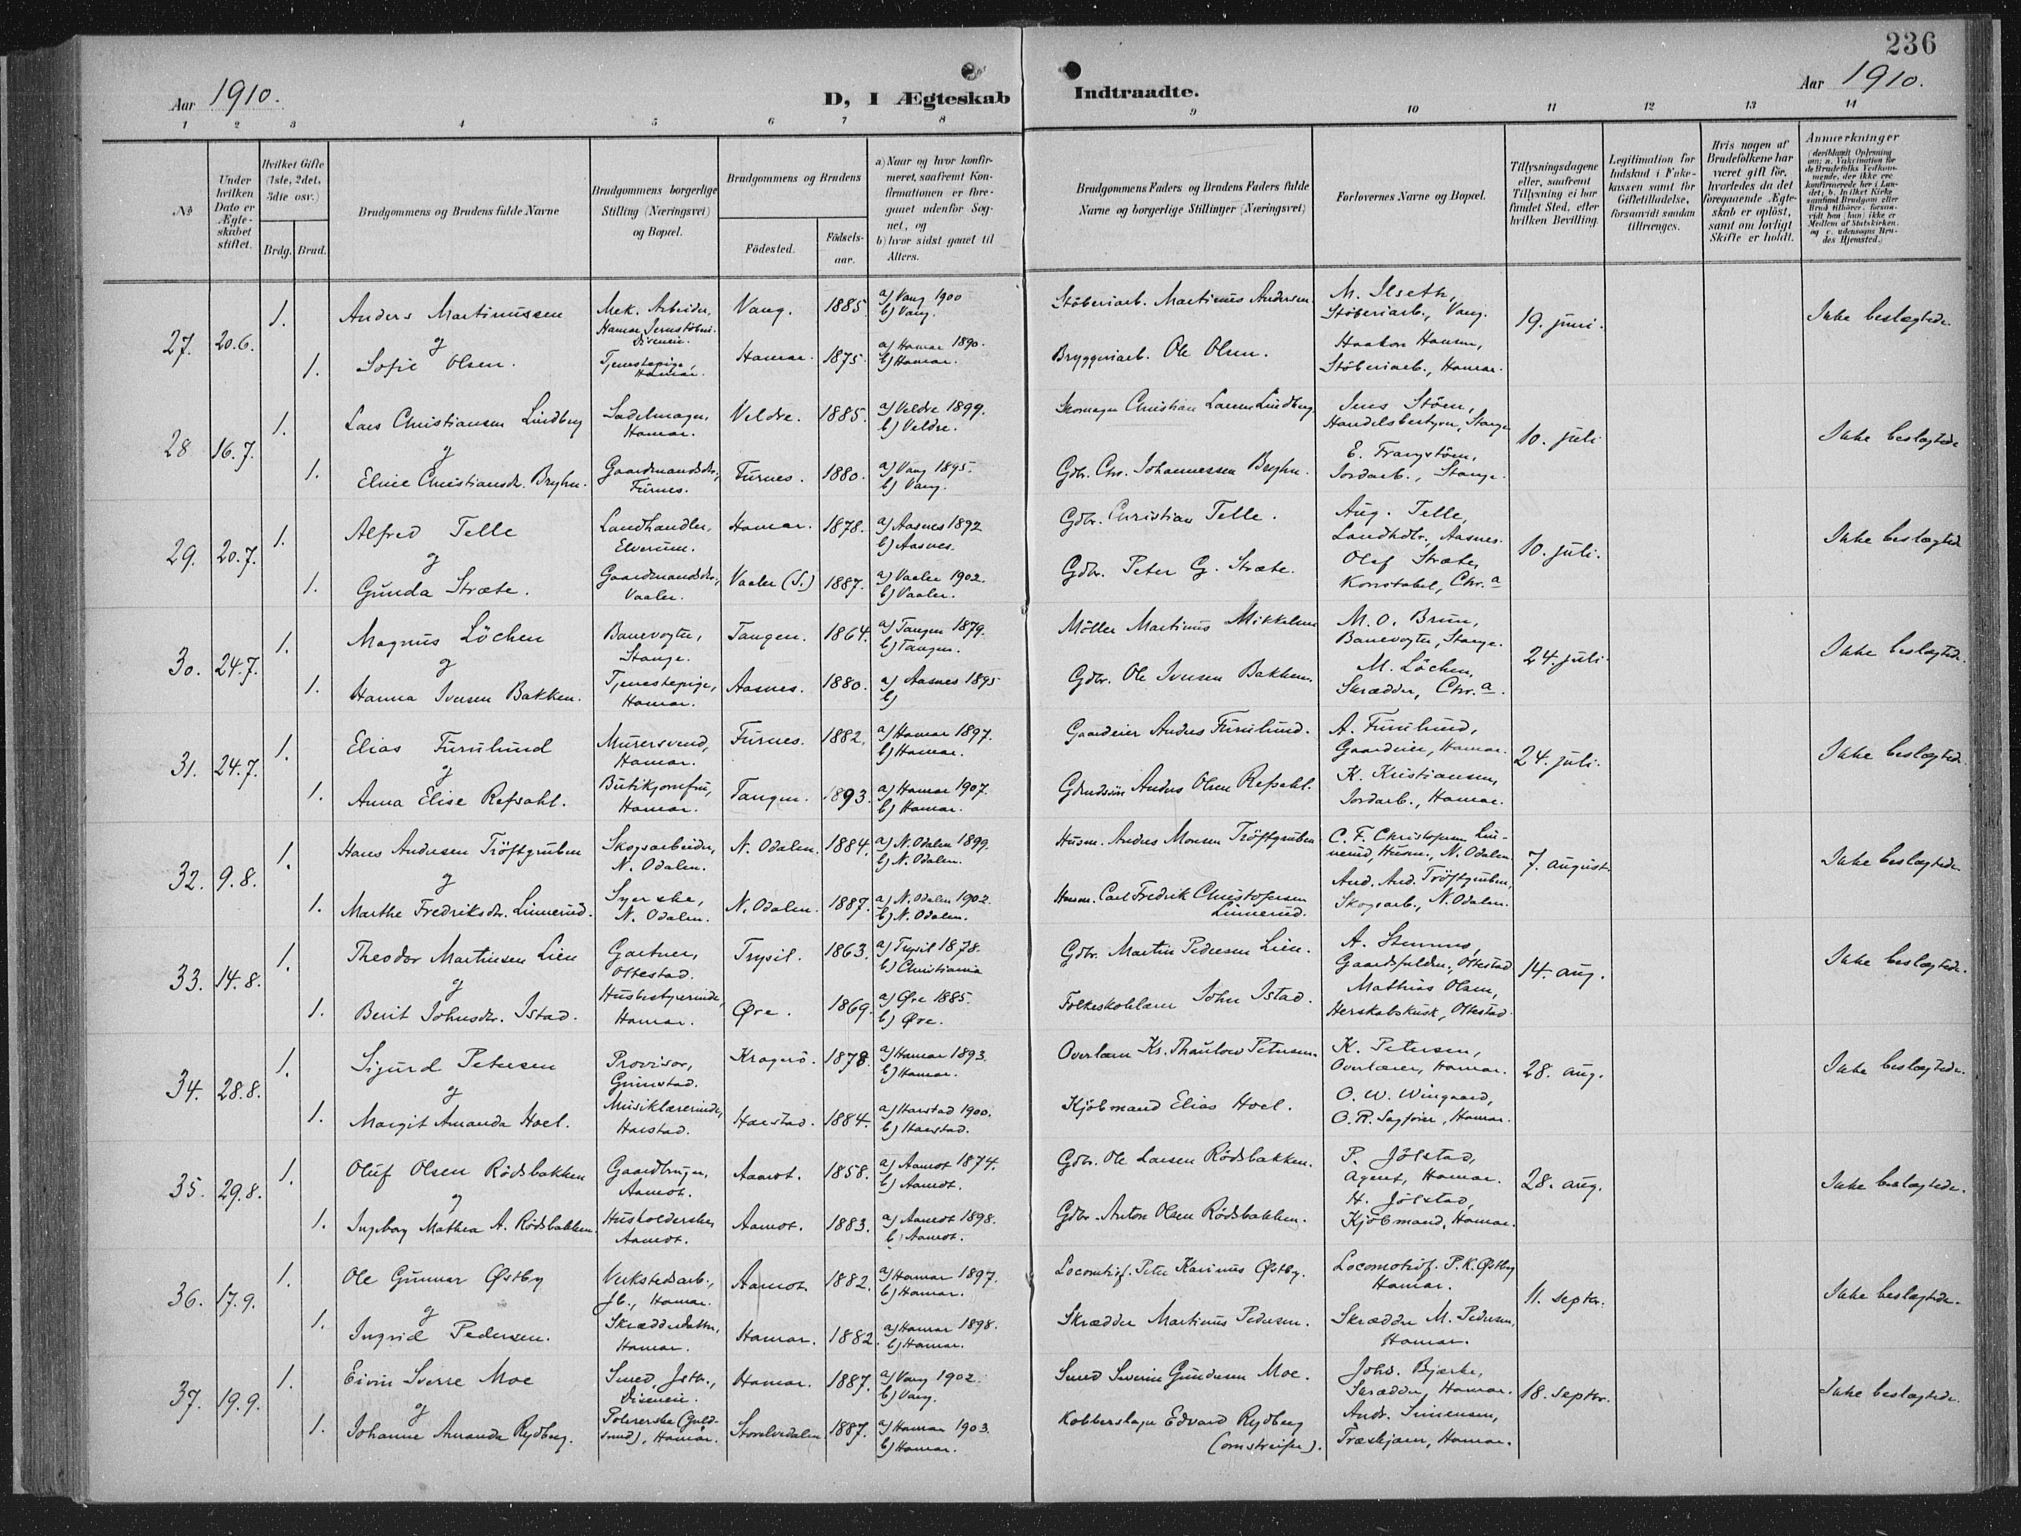 236
Aar 1910.
D, I Ægteskab Indtraadte.
Aar 1910.
1 2 3 4 5 6 7 8 9 10 11 12 13 14
№
Under hvilken Dato er Ægteskabet stiftet.
Hvilket Gifte (1ste, 2det, 3dte osv.)
Brdg. Brud.
Brudgommens og Brudens fulde Navne
Brudgommens borgerlige Stilling (Næringsvei) og Bopæl.
Brudgommens og Brudens
Födested.
Födselsaar.
a) Naar og hvor konfirmeret, saafremt Konfirmationen er foregaaet udenfor Sognet, og
b) hvor sidst gaaet til Alters.
Brudgommens Faders og Brudens Faders fulde Navne og borgerlige Stillinger (Næringsvei)
Forlovernes Navne og Bopæl.
Tillysningsdagene eller, saafremt Tillysning ei har fundet Sted, efter hvilken Bevilling.
Legitimation for Indskud i Enkekassen samt for Giftetilladelse, forsaavidt saadan tiltrænges.
Hvis nogen af Brudefolkene har været gift før, hvorledes da det foregaaende Ægteskab er oplöst, samt om lovligt Skifte er holdt.
Anmerkninger
27. 20.6. 1. Anders Martinussen Mek. Arbeider, Hamar Jernstöberi. Disenein. Vang. 1885 a) Vang 1900 b) Vang. Stöberiarb. Martinus Andersen M. Ilseth, Stöberiarb., Vang. 19. juni. Ikke beslægtede.
og
1. Sofie Olsen. Tjenestepige, Hamar. Hamar. 1875. a) Hamar 1890. b) Hamar. Bryggeriarb. Ole Olsen. Haakon Hansen, Stöberiarb., Hamar.
28 16.7. 1. Lars Christiansen Lindberg Sadelmager, Hamar. Veldre. 1885. a) Veldre 1899. b) Veldre. Skomager Christian Larsen Lindberg Jens Stöen, Handelsbestyrer, Stange 10. juli Ikke beslægtede
og
1. Eline Christiansdr. Bryhn. Gaardmandsdtr., Furnes. Furnes. 1880. a) Vang 1895. b) Vang. Gdbr. Chr. Johannessen Bryhn. E. Frangstöen, Jordarb., Stange.
29. 20.7. 1. Alfred Telle Landhandler, Elverum. Hamar. 1878. a) Aasnes 1892 b) Aasnes. Gdbr. Christian Telle. Aug. Telle, Landhdlr., Aasnes. 10. juli. Ikke beslægtede
og
1. Gunda Stræte. Gaardmandsdtr., Vaaler. Vaaler (S.) 1887. a) Vaaler 1902. b) Vaaler. Gdbr. Peter G. Stræte. Olaf Stræte, Konstabel, Chr.a
30. 24.7. 1. Magnus Löchen Banevogter, Stange. Tangen. 1864. a) Tangen 1879. b) Tangen. Möller Martinus Mikkelsen M. O. Brun, Banevogter, Stange. 24. juli. Ikke beslægtede.
og
1. Hanna Iversen Bakken. Tjenestepige, Hamar. Aasnes. 1880. a) Aasnes 1895 b) Gdbr. Ole Iversen Bakken. M. Löchen, Skrædder, Chr.a.
31. 24.7. 1. Elias Furulund Murersvend, Hamar. Furnes. 1882. a) Hamar 1897. b) Hamar. Gaardeier Anders Furulund. A. Furulund, Gaardeier, Hamar. 24. juli. Ikke beslægtede.
og
1. Anna Elise Refsahl. Butikjomfru, Hamar. Tangen. 1893. a) Hamar 1907. b) Hamar. Anders Olsen Refsahl. K. Kristiansen, Jordarb., Hamar.
32. 9.8. 1. Hans Andersen Tröftgruben Skogsarbeider, N. Odalen. N. Odalen. 1884. a) N. Odalen 1899. b) N. Odalen. Husm. Anders Monsen Tröftgruben C. F. Christofersen Linnerud, Husm., N. Odalen. 7. august. Ikke beslægtede.
og
1. Marthe Fredriksdr. Linnerud. Syerske, N. Odalen. N. Odalen. 1887. a) N. Odalen 1902. b) N. Odalen. Husm. Carl Fredrik Christofersen Linnerud. And. And. Tröftgruben, Skogsarb., N. Odalen.
33. 14.8. 1. Theodor Martinsen Lien Gartner, Ottestad. Trysil. 1863. a) Trysil 1878. b) Christiania Gdbr. Martin Pedersen Lien. A. Stennes, Gaardsfuldm., Ottestad 14. aug. Ikke beslægtede.
og
1. Berit Johnsdtr. Istad. Husbestyrerinde, Hamar. Øre. 1869. a) Øre 1885. b) Øre. Folkeskolelærer John Istad. Mathias Olsen, Herskabskusk, Ottestad.
34. 28.8. 1. Sigurd Petersen Provisor, Grimstad. Kragerö. 1878. a) Hamar 1893. b) Hamar. Overlærer Ks. Thaulow Petersen. K. Petersen, Overlærer, Hamar. 28. aug. Ikke beslægtede.
og
1. Margit Amanda Hoel. Musiklærerinde, Harstad. Harstad. 1884. a) Harstad 1900. b) Harstad. Kjöbmand Elias Hoel. O. W. Wingaard, O. R. Sagförer, Hamar.
35. 29.8. 1. Oluf Olsen Rödsbakken Gaardbruger, Aamot. Aamot. 1858. a) Aamot 1874. b) Aamot. Gdbr. Ole Larsen Rödsbakken. P. Jölstad, Agent, Hamar. 28. aug. Ikke beslægtede.
og
1. Ingeborg Mathea A. Rödsbakken. Husholderske, Aamot. Aamot. 1883. a) Aamot 1898. b) Aamot. Gdbr. Anton Olsen Rödsbakken. H. Jölstad, Kjöbmand, Hamar.
36. 17.9. 1. Ole Gunnar Østby Verkstedsarb., Jb., Hamar. Aamot. 1882. a) Hamar 1897. b) Hamar. Locomotivf. Peter Karinus Østby. Locomotivf. P. K. Østby Hamar. 11. septbr. Ikke beslægtede.
og
1. Ingrid Pedersen. Skrædderdatter, Hamar. Hamar. 1882. a) Hamar 1898. b) Hamar. Skrædder Martinus Pedersen. Skrædder M. Pedersen, Hamar.
37. 19.9. 1. Eivin Sverre Moe Smed, Jstb., Disenein. Hamar. 1887. a) Vang 1902. b) Vang. Smed Severin Gundersen Moe. Johs. Bjerke, Skrædder, Hamar. 18. septbr. Ikke beslægtede.
og
1. Johanne Amanda Rydberg. Polererske (Guldsmed), Hamar. Storelvedalen 1887. a) Hamar 1903. b) Hamar. Kobberslager Edvard Rydberg (omstreifer). Andr. Simensen, Træskjærer, Hamar.